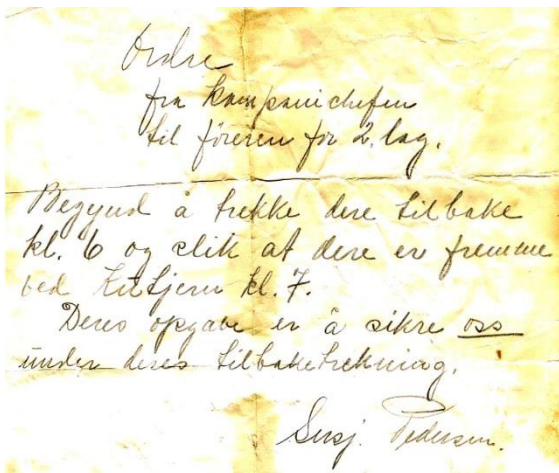 Ordre
fra kompanichefen
til föreren for 2. lag.
Begynd å trekke dere tilbake
kl. 6 og slik at dere er fremme
ved Kittjern kl. 7.
Deres opgave er å sikre oss
under deres tilbaketrekning.
Sersj. Pedersen.